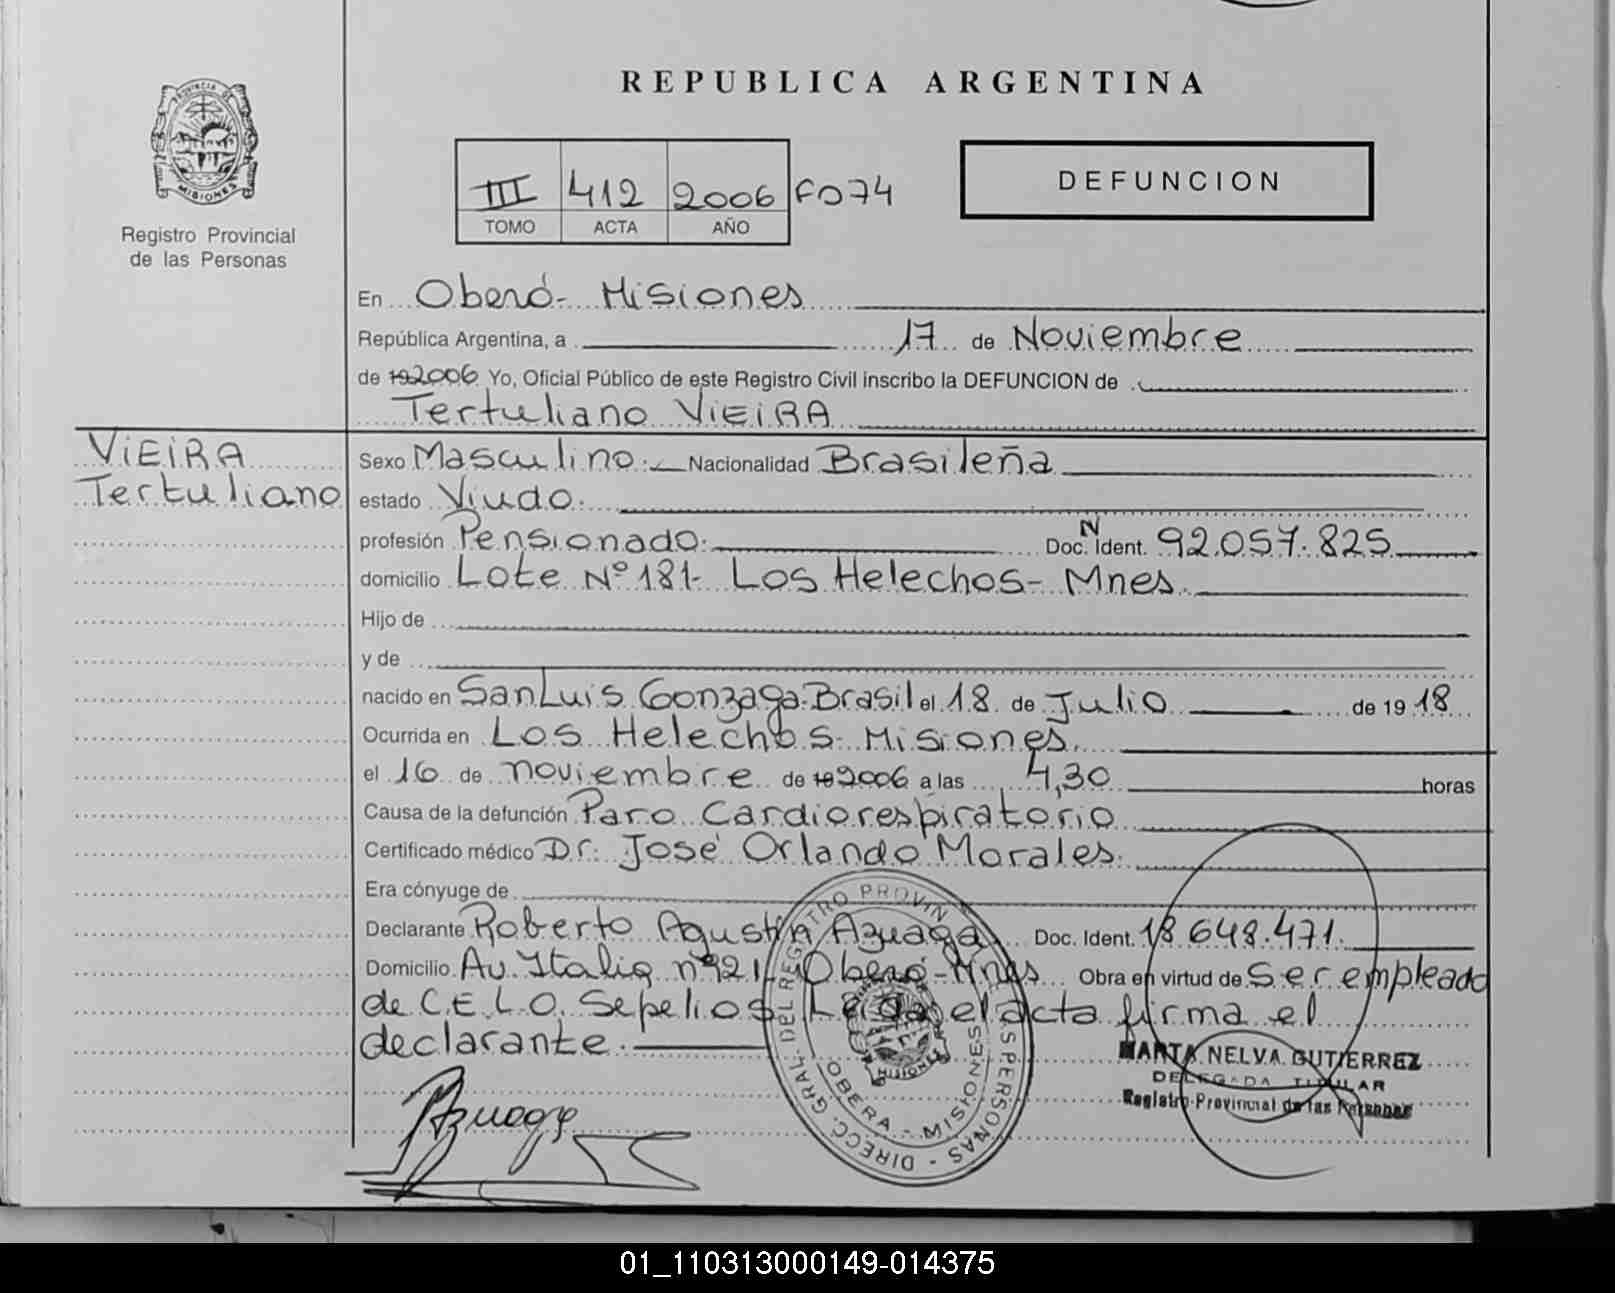 REPUBLICA ARGENTINA
PROVINCIA DE MISIONES
Registro Provincial
de las Personas
III 412 2006 Fo 74
TOMO ACTA AÑO
DEFUNCION
En Oberá- Misiones
República Argentina, a 17 de Noviembre
de 192006 Yo, Oficial Público de este Registro Civil inscribo la DEFUNCION de
Tertuliano VIEIRA
VIEIRA
Tertuliano
Sexo Masculino.- Nacionalidad Brasileña
estado Viudo.
profesión Pensionado. Doc. N Ident. 92.057.825
domicilio Lote Nº 181- Los Helechos- Mnes.
Hijo de
y de
nacido en San Luis Gonzaga-Brasil el 18 de Julio de 19 18
Ocurrida en Los Helechos- Misiones.
el 16 de noviembre de 192006 a las 4,30 horas
Causa de la defunción Paro Cardiorespiratorio
Certificado médico Dr. José Orlando Morales.
Era cónyuge de
Declarante Roberto Agustín Azuaga. Doc. Ident. 18.648.471.
Domicilio Av. Italia nº 921- Oberá-Mnes Obra en virtud de Ser empleado
de C.E.L.O. Sepelios. Leida el acta firma el
declarante.
Azuaga
DIRECC. GRAL. DEL REGISTRO PROVIN S PERSONAS -
MISIONES
OBERA - MISIONES
MARTA NELVA GUTIERREZ
DELEGADA TITULAR
Registro Provincial de las Personas
01_110313000149-014375